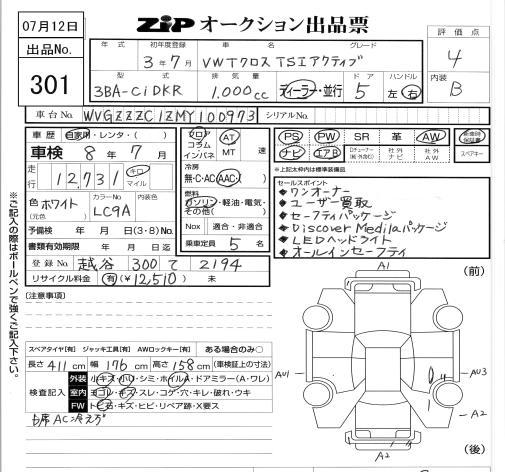 07月12日
ZIP オークション出品票
出品No.
301
評価点
4
内装
B
年式 初年度登録 車名 グレード
3年7月 VW Tクロス TSIアクティブ
型式 排気量 ドア ハンドル
3BA-C1DKR 1.000cc ディーラー・並行 5 左・右
車台No. WVGZZZC1ZMY100973 シリアルNo.
車歴 自家用・レンタ・( )
車検 8年 7月
走行 12,731 キロ マイル
色 ホワイト (元色) カラーNo. LC9A 内装色
予備検 年 月 日(3・8)No.
書類有効期限 年 月 日迄
登録No. 越谷 300 て 2194
リサイクル料金 有(¥12,510) 未
フロア コラム インパネ AT MT 速
冷房
無・C・AC・AAC
燃料
ガソリン・軽油・電気・その他( )
Nox 適合・非適合
乗車定員 5 名
PS PW SR 革 AW 新車時保証書
ナビ エアB 社外ナビ 社外AW スペアキー
※上記枠内は標準装備品
セールスポイント
◆ワンオーナー
◆ユーザー買取
◆セーフティパッケージ
◆Discover Mediaパッケージ
◆LEDヘッドライト
◆オールインセーフティ
(注意事項)
スペアタイヤ[有] ジャッキ工具[有] AWロックキー[有] ある場合のみ○
長さ 411cm 幅 176cm 高さ 158cm (車検証上の寸法)
検査記入
外装 小キズ・小凹・シミ・ホイルA・ドアミラー(A・ワレ)
室内 ヨゴレ・キズ・スレ・コゲ・穴・キレ・破れ・ウキ
FW トビ石・キズ・ヒビ・リペア跡・X要ス
AC冷えず
※ご記入の際はボールペンで強くご記入下さい。
(前)
A1
AU1
AU3
A2
A2
(後)